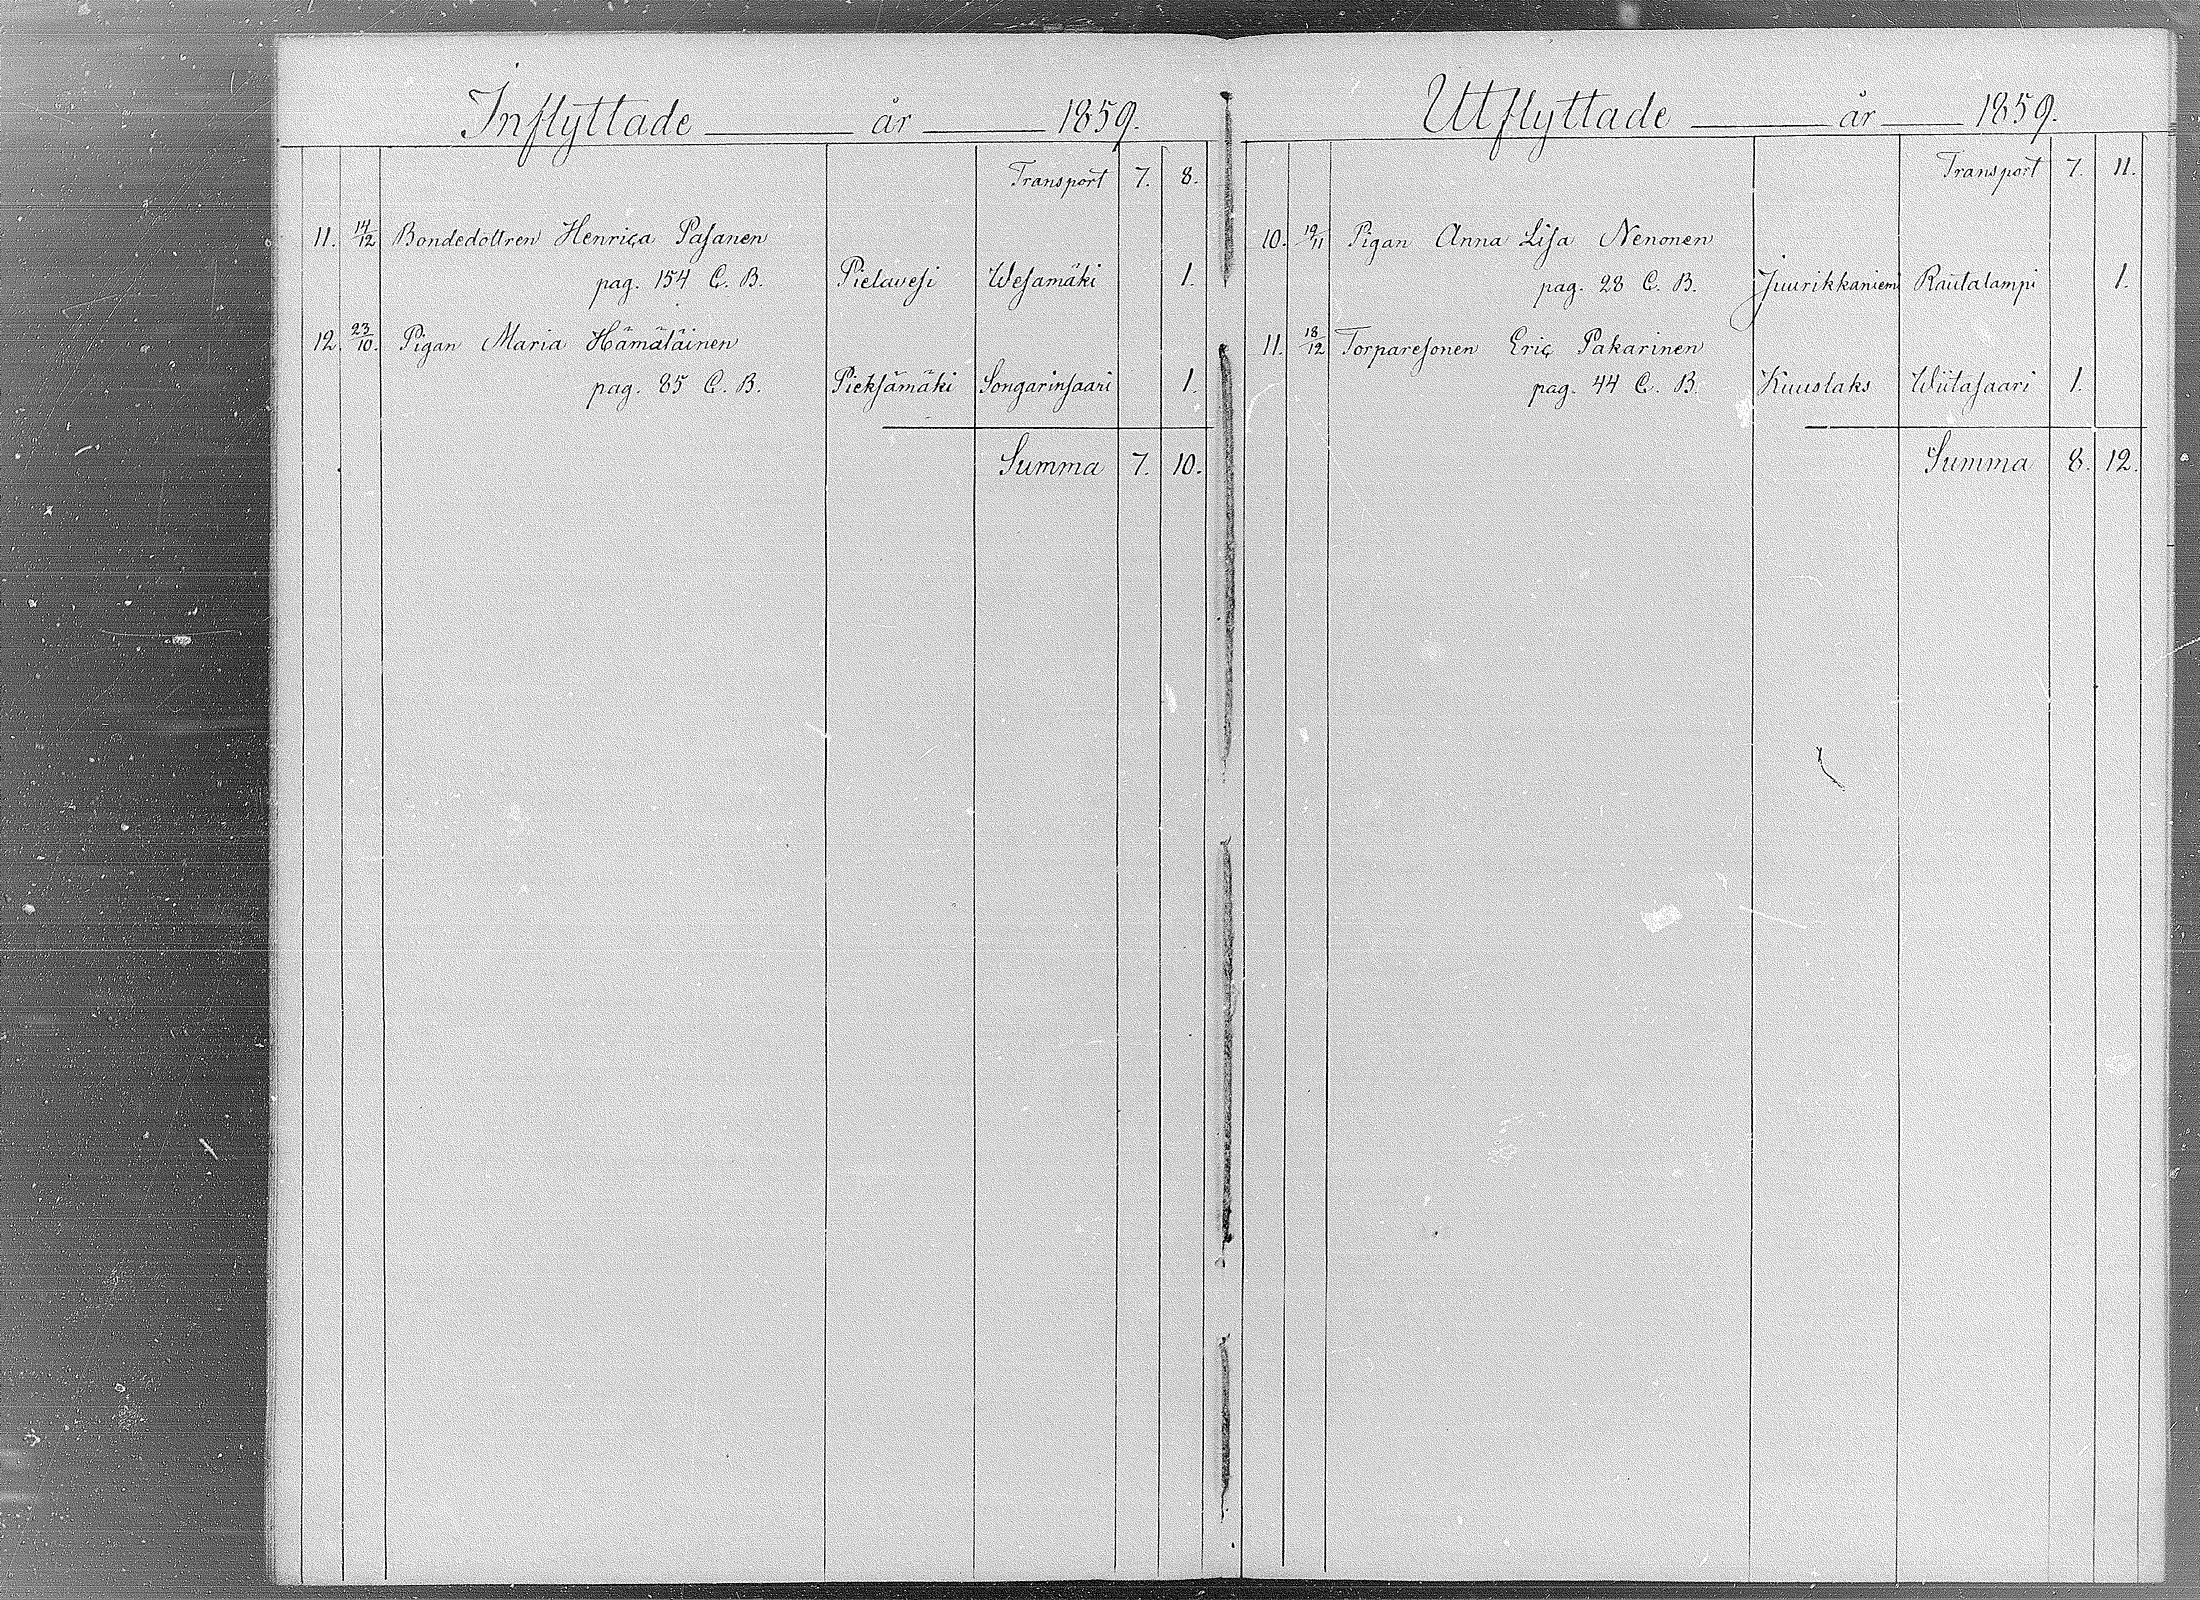 Inflyttade år 1859.
Transport 7. 8.
11. 14/12 Bondedottren Henrica Pasanen
pag. 154 C. B. Pielavesi Wesamäki 1.
12. 23/10. Pigan Maria Hämäläinen
pag. 85 C. B. Pieksämäki Songarinsaari 1.
Summa 7. 10.
Utflyttade år 1859.
Transport 7. 11.
10. 19/11 Pigan Anna Lisa Nenonen
pag. 28 C. B. Juurikkaniemi Rautalampi 1.
11. 18/12 Torparesonen Eric Pakarinen
pag. 44 C. B. Kuuslaks Wiitasaari 1.
Summa 8. 12.